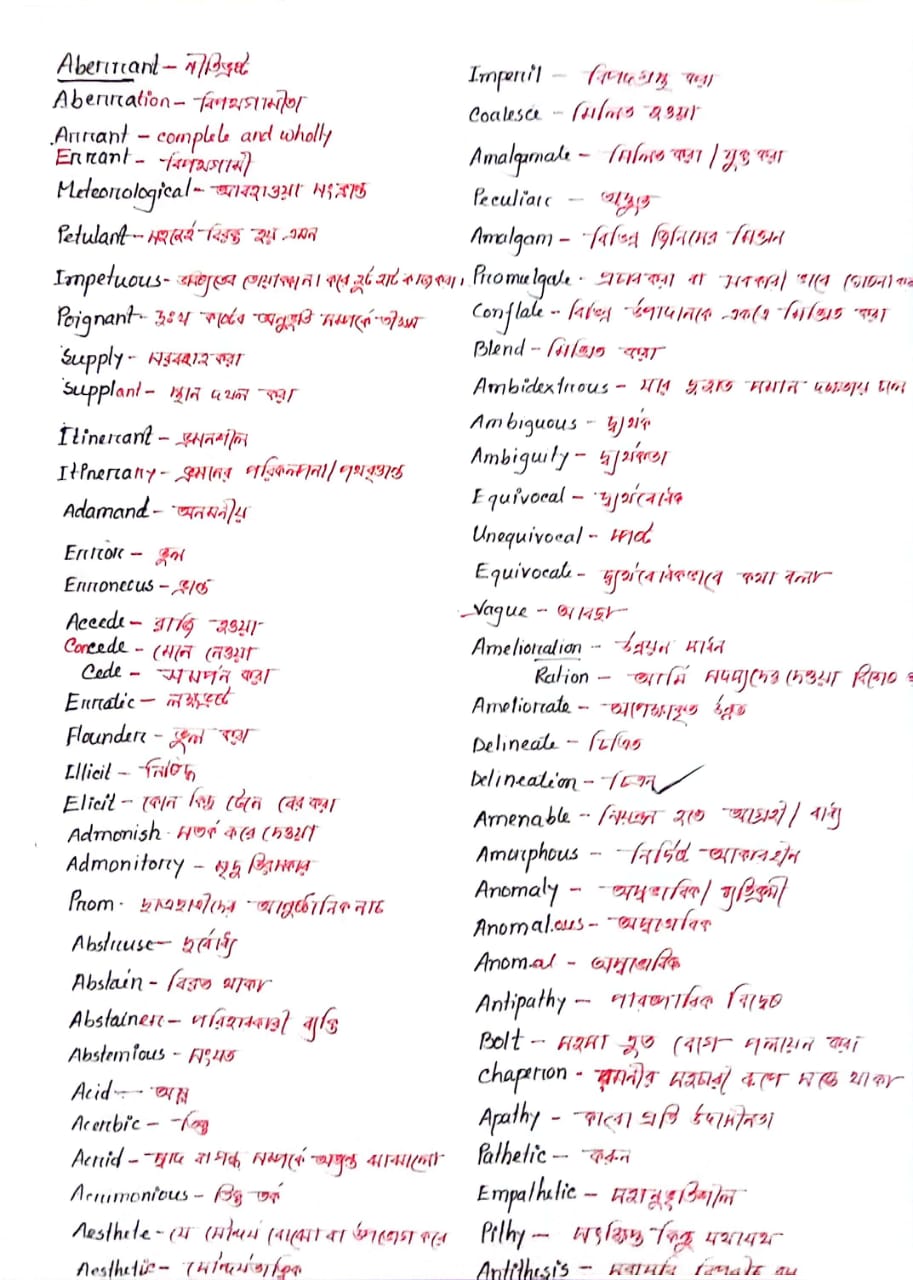 Aberrant - নীতিভ্রষ্ট
Aberration - বিপথগামীতা
Arrant - complete and wholly
Errant - বিপথগামী
Meteorological - আবহাওয়া সংক্রান্ত
Petulant - সহজেই বিরক্ত হয় এমন
Impetuous - ভবিষ্যতের তোয়াক্কা না করে হুট হাট কাজ করা।
Poignant - দুঃখ কষ্টের অনুভূতি সম্পর্কে তীব্র
Supply - সরবরাহ করা
Supplant - স্থান দখল করা
Itinerant - ভ্রমনশীল
Itinerary - ভ্রমনের পরিকল্পনা/পথবৃত্তান্ত
Adamand - অনমনীয়
Error - ভুল
Erroneous - ভ্রান্ত
Accede - রাজি হওয়া
Concede - মেনে নেওয়া
Cede - সমর্পন করা
Erratic - লক্ষ্যভ্রষ্ট
Flounder - ভুল করা
Illicit - নিষিদ্ধ
Elicit - কোন কিছু টেনে বের করা
Admonish - সতর্ক করে দেওয়া
Admonitory - মৃদু তিরস্কার
Prom - ছাত্রছাত্রীদের আনুষ্ঠানিক নাচ
Abstruse - দুর্বোধ্য
Abstain - বিরত থাকা
Abstainer - পরিহারকারী ব্যক্তি
Abstemious - সংযত
Acid - অম্ল
Acerbic - তিক্ত
Acrid - স্বাদ বা গন্ধ সম্পর্কে অত্যন্ত ঝাঝালো
Acrimonious - তিক্ত তর্ক
Aesthete - যে সৌন্দর্য বোঝে বা উপভোগ করে
Aesthetic - সৌন্দর্যতাত্ত্বিক
Imperil - বিপদগ্রস্থ করা
Coalesce - মিলিত হওয়া
Amalgamate - মিলিত করা / যুক্ত করা
Peculiar - অদ্ভুত
Amalgam - বিভিন্ন জিনিসের মিশ্রন
Promulgate - প্রচার করা বা সরকারি ভাবে ঘোষনা
Conflate - বিভিন্ন উপাদানকে একত্রে মিশ্রিত করা
Blend - মিশ্রিত করা
Ambidextrous - যার দুহাত সমান দক্ষতায় চলে
Ambiguous - দ্ব্যর্থক
Ambiguity - দ্ব্যর্থকতা
Equivocal - দ্ব্যর্থবোধক
Unequivocal - স্পষ্ট
Equivocate - দ্ব্যর্থবোধকভাবে কথা বলা
Vague - আবছা
Amelioration - উন্নয়ন সাধন
Ration - আর্মি সদস্যদের দেওয়া বিশেষ
Ameliorate - অপেক্ষাকৃত উন্নত
Delineate - চিত্রিত
Delineation - চিত্রন
Amenable - নিয়ন্ত্রন হতে আগ্রহী / বাধ্য
Amorphous - নির্দিষ্ট আকারহীন
Anomaly - অস্বাভাবিক/ ব্যতিক্রমী
Anomalous - অস্বাভাবিক
Anomal - অস্বাভাবিক
Antipathy - পারস্পারিক বিদ্বেষ
Bolt - সহসা দ্রুত বেগে পলায়ন করা
Chaperon - সহচরী রূপে সঙ্গে থাকা
Apathy - কারো প্রতি উদাসীনতা
Pathetic - করুন
Empathetic - সহানুভূতিশীল
Pithy - সংক্ষিপ্ত কিন্তু যথাযথ
Antithesis - সরাসরি বিপরীত